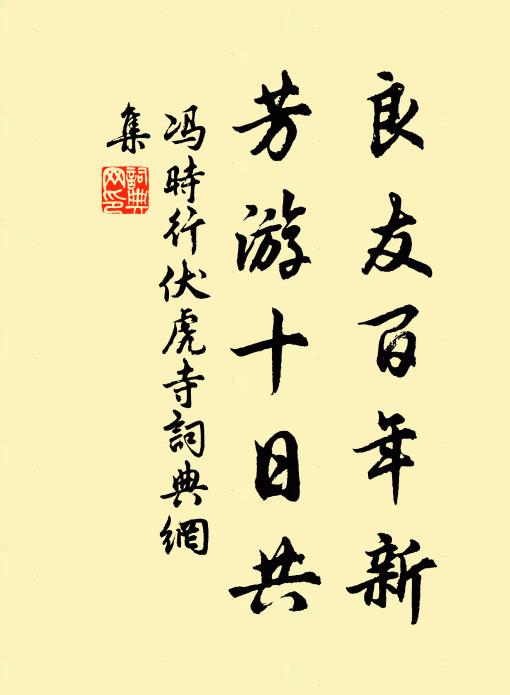 良友百年新
芳游十日共
冯時行伏虎寺詞典網
集
詞典網印